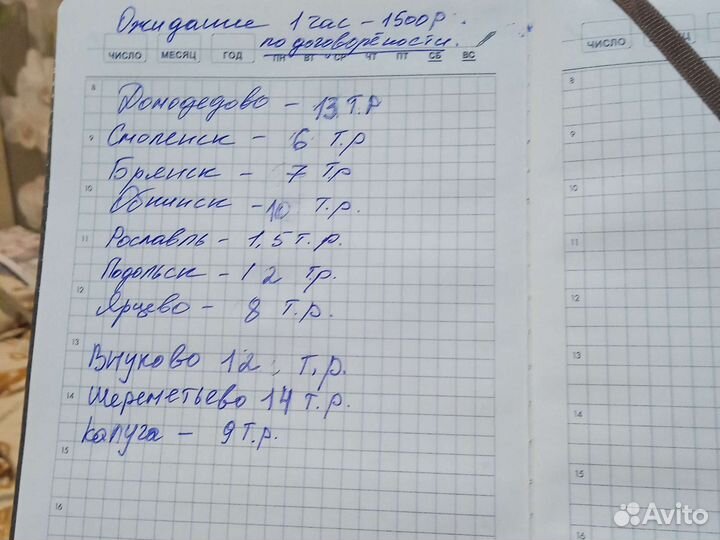 Ожидание 1 час - 1500р.
по договорёности.
ЧИСЛО МЕСЯЦ ГОД ПН ВТ СР ЧТ ПТ СБ ВС
ЧИСЛО
8 Домодедово - 13 т.р
9 Смоленск - 6 т.р
Брянск - 7 тр
10 Обнинск - 10 т.р.
11 Рославль - 1,5 т.р.
Подольск - 12 тр.
12 Ярцево - 8 т.р.
13
Внуково 12 т.р.
14 Шереметьево 14 т.р.
Калуга - 9 т.р.
15
16
8
9
10
11
12
13
14
15
16
Avito